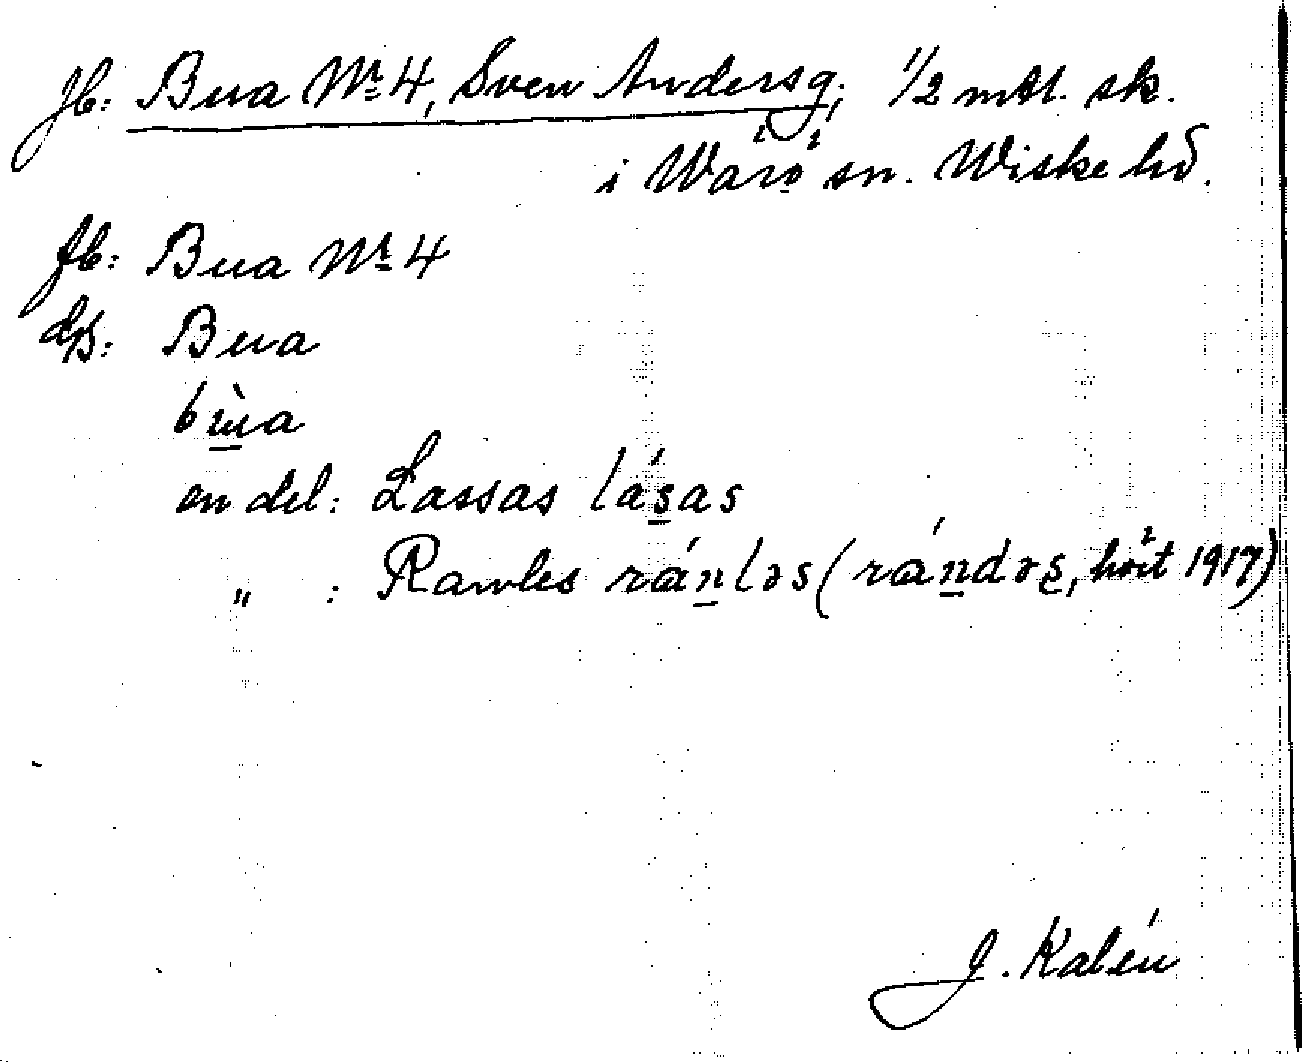 Jb: Bua Nr 4, Sven Andersg, 1/2 mtl. sk.
i Warö sn. Wiske hd.
fb: Bua Nr 4
ds: Bua
bùa
en del: Lassas lásas
" : Ramles ránləs (rándəs, hört 1917)
J. Kalén